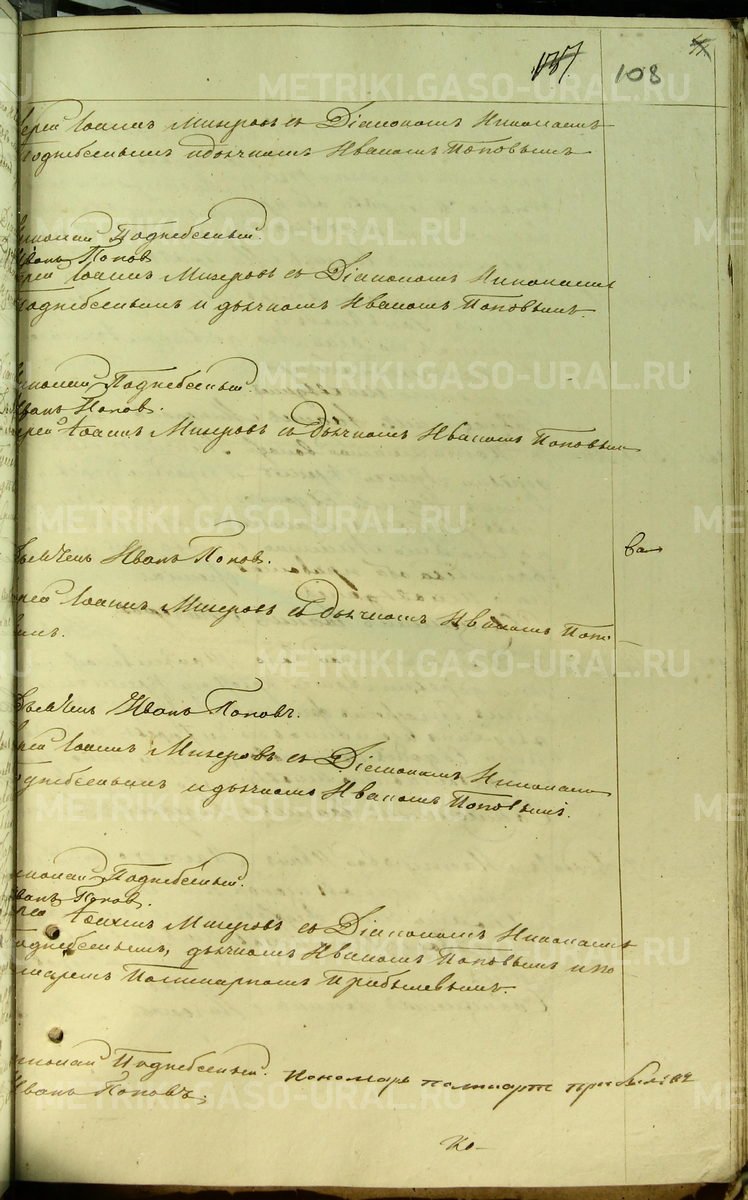 137.
108
ерей Іоаннъ Мизеровъ съ Діакономъ Николаемъ
Поднебеснымъ и дьячкомъ Иваномъ Поповымъ
Николай Поднебесный.
Иванъ Попов
ерей Іоаннъ Мизеровъ съ Діакономъ Николаемъ
Поднебеснымъ и дьячкомъ Иваномъ Поповымъ.
Николай Поднебесный.
Иванъ Попов.
ерей Іоаннъ Мизеровъ съ дьячкомъ Иваномъ Поповым
Иванъ Попов.
ва
ерей Іоаннъ Мизеровъ съ дьячкомъ Иваномъ Попо-
вымъ.
Иванъ Поповъ.
ерей Іоаннъ Мизеровъ съ Діакономъ Николаем
Поднебеснымъ и дьячкомъ Иваномъ Поповымъ.
Николай Поднебесный.
Иванъ Попов.
ерей Іоаннъ Мизеровъ съ Діакономъ Николаемъ
Поднебеснымъ, дьячкомъ Иваномъ Поповымъ и по
номаремъ Прибылевымъ.
Николай Поднебесный. Пономарь Прибылевъ
Иванъ Поповъ.
Ко-
METRIKI.GASO-URAL.RU